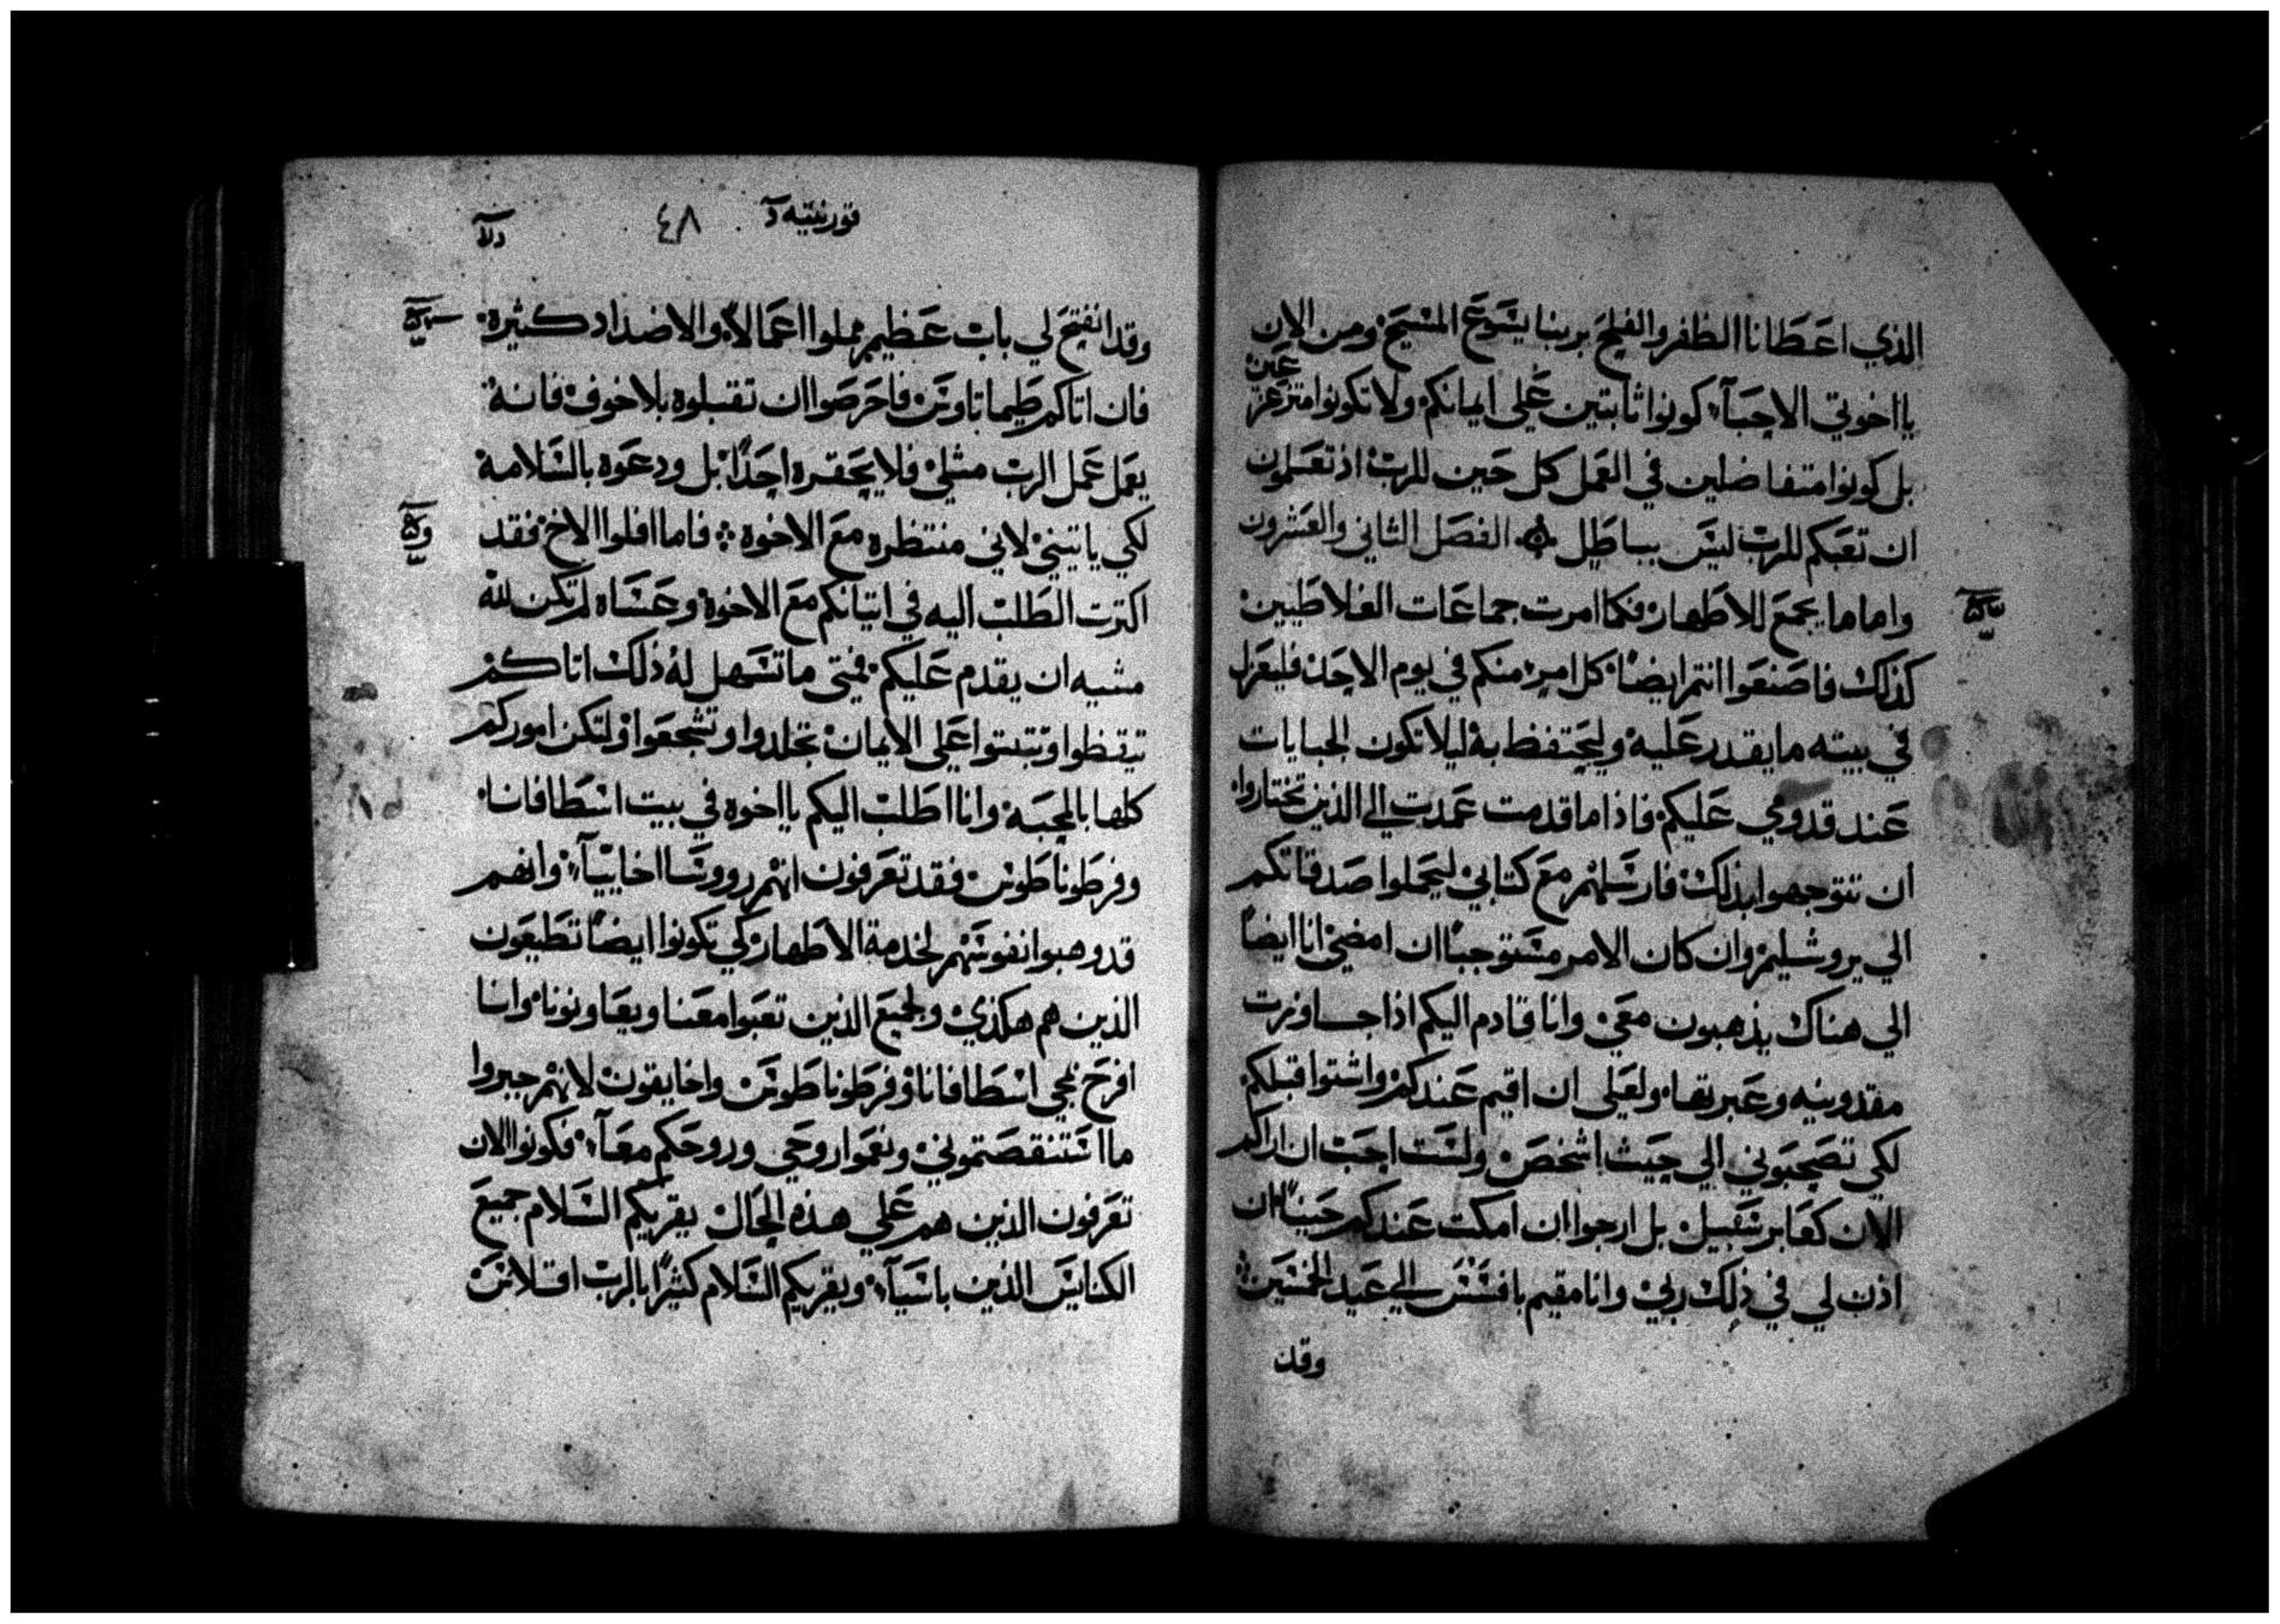 الذي اعطانا الظفر والفلح بربنا يشوع المسيح ومن الان
يا اخوتي الاحبآء كونوا ثابتين علي ايمانكم ولا تكونوا متزعزعين
بل كونوا متفاضلين في العمل كل حين للرب اذ تعلمون
ان تعبكم للرب ليس بباطل الفصل الثاني والعشرون
واما ما يجمع للاطهار فكما امرت جماعات الغلاطيين
كذلك فاصنعوا انتم ايضًا كل امرء منكم في يوم الاحد فليعزل
في بيته ما يقدر عليه وليحتفظ به ليلا تكون الجبايات
عند قدومي عليكم فاذا ما قدمت عمدت الي الذين تختاروا
ان تتوجهوا بذلك فارسلهم مع كتابي ليحملوا صدقاتكم
الي يروشليم وان كان الامر مستوجبًا ان امضي انا ايضًا
الي هناك يذهبون معي وانا قادم اليكم اذا جاوزت
مقدونيه وعبرتها ولعلي ان اقيم عندكم واشتوا قبلكم
لكي تصحبوني الي حيث اشخص ولست احب ان اراكم
الان كعابر سبيل بل ارجوا ان امكث عندكم حينًا ان
اذن لي في ذلك ربي وانا مقيم بافسس الي عيد الخمسين
وقد
قورنتيه ٤٨
وقد انفتح لي باب عظيم مملوا اعمالاً والاضداد كثيرة
فان اتاكم طيماتاوس فاحرصوا ان تقبلوه بلا خوف فانه
يعمل عمل الرب مثلي فلا يحقره احدًا بل ودعوه بالسلامة
لكي ياتيني لاني منتظره مع الاخوة فاما افلوا الاخ فقد
اكثرت الطلب اليه في اتيانكم مع الاخوة وعساه لم تكن لله
مشيه ان يقدم عليكم فمتي ما تسهل له ذلك اتاكم
تيقظوا وتبتوا علي الايمان تجلدوا وتشجعوا ولتكن اموركم
كلها بالمحبه وانا اطلب اليكم يا اخوه في بيت اسطافانا
وفرطوناطوس فقد تعرفون انهم رووسا اخاييآء وانهم
قد وهبوا نفوسهم لخدمة الاطهار كي تكونوا ايضًا تطيعون
الذين هم هكذي ولجميع الذين تعبوا معنا ويعاونونا وانا
افرح بمجي اسطافانا وفرطوناطوس واخايقوس لانهم جبروا
ما استنقصتموني ونعموا روحي وروحكم معآ فكونوا الان
تعرفون الذين هم علي هذه الحال يقريكم السلام جميع
الكنايس الذين باسيآ ويقريكم السلام كثيرًا بالرب اقلاس